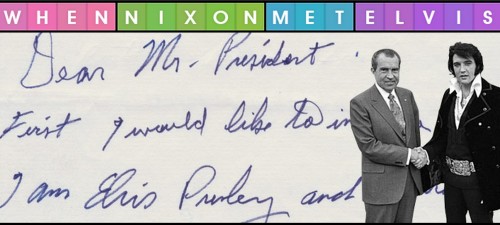 WHEN NIXON MET ELVIS
Dear Mr. President.
First I would like to in
I am Elvis Presley and